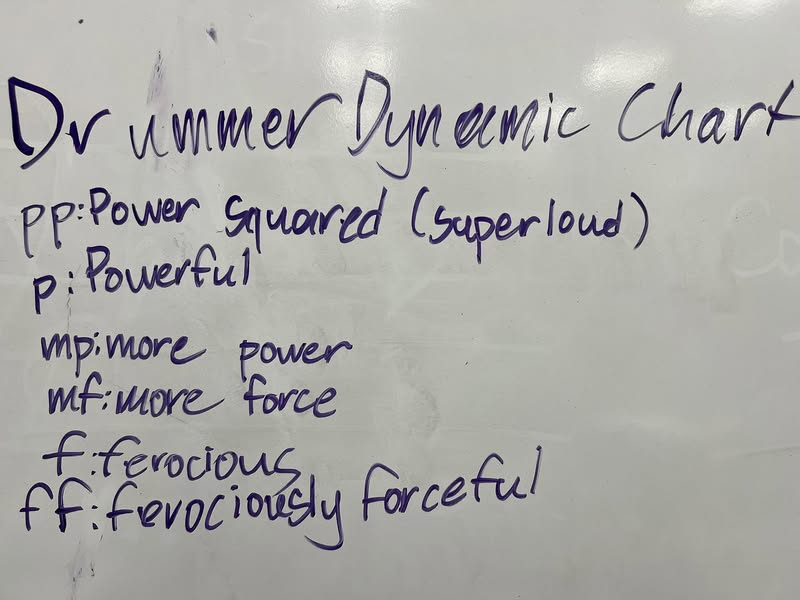 Drummer Dynamic Chart
pp: Power squared (superloud)
p: Powerful
mp: more power
mf: more force
f: ferocious
ff: ferociously forceful